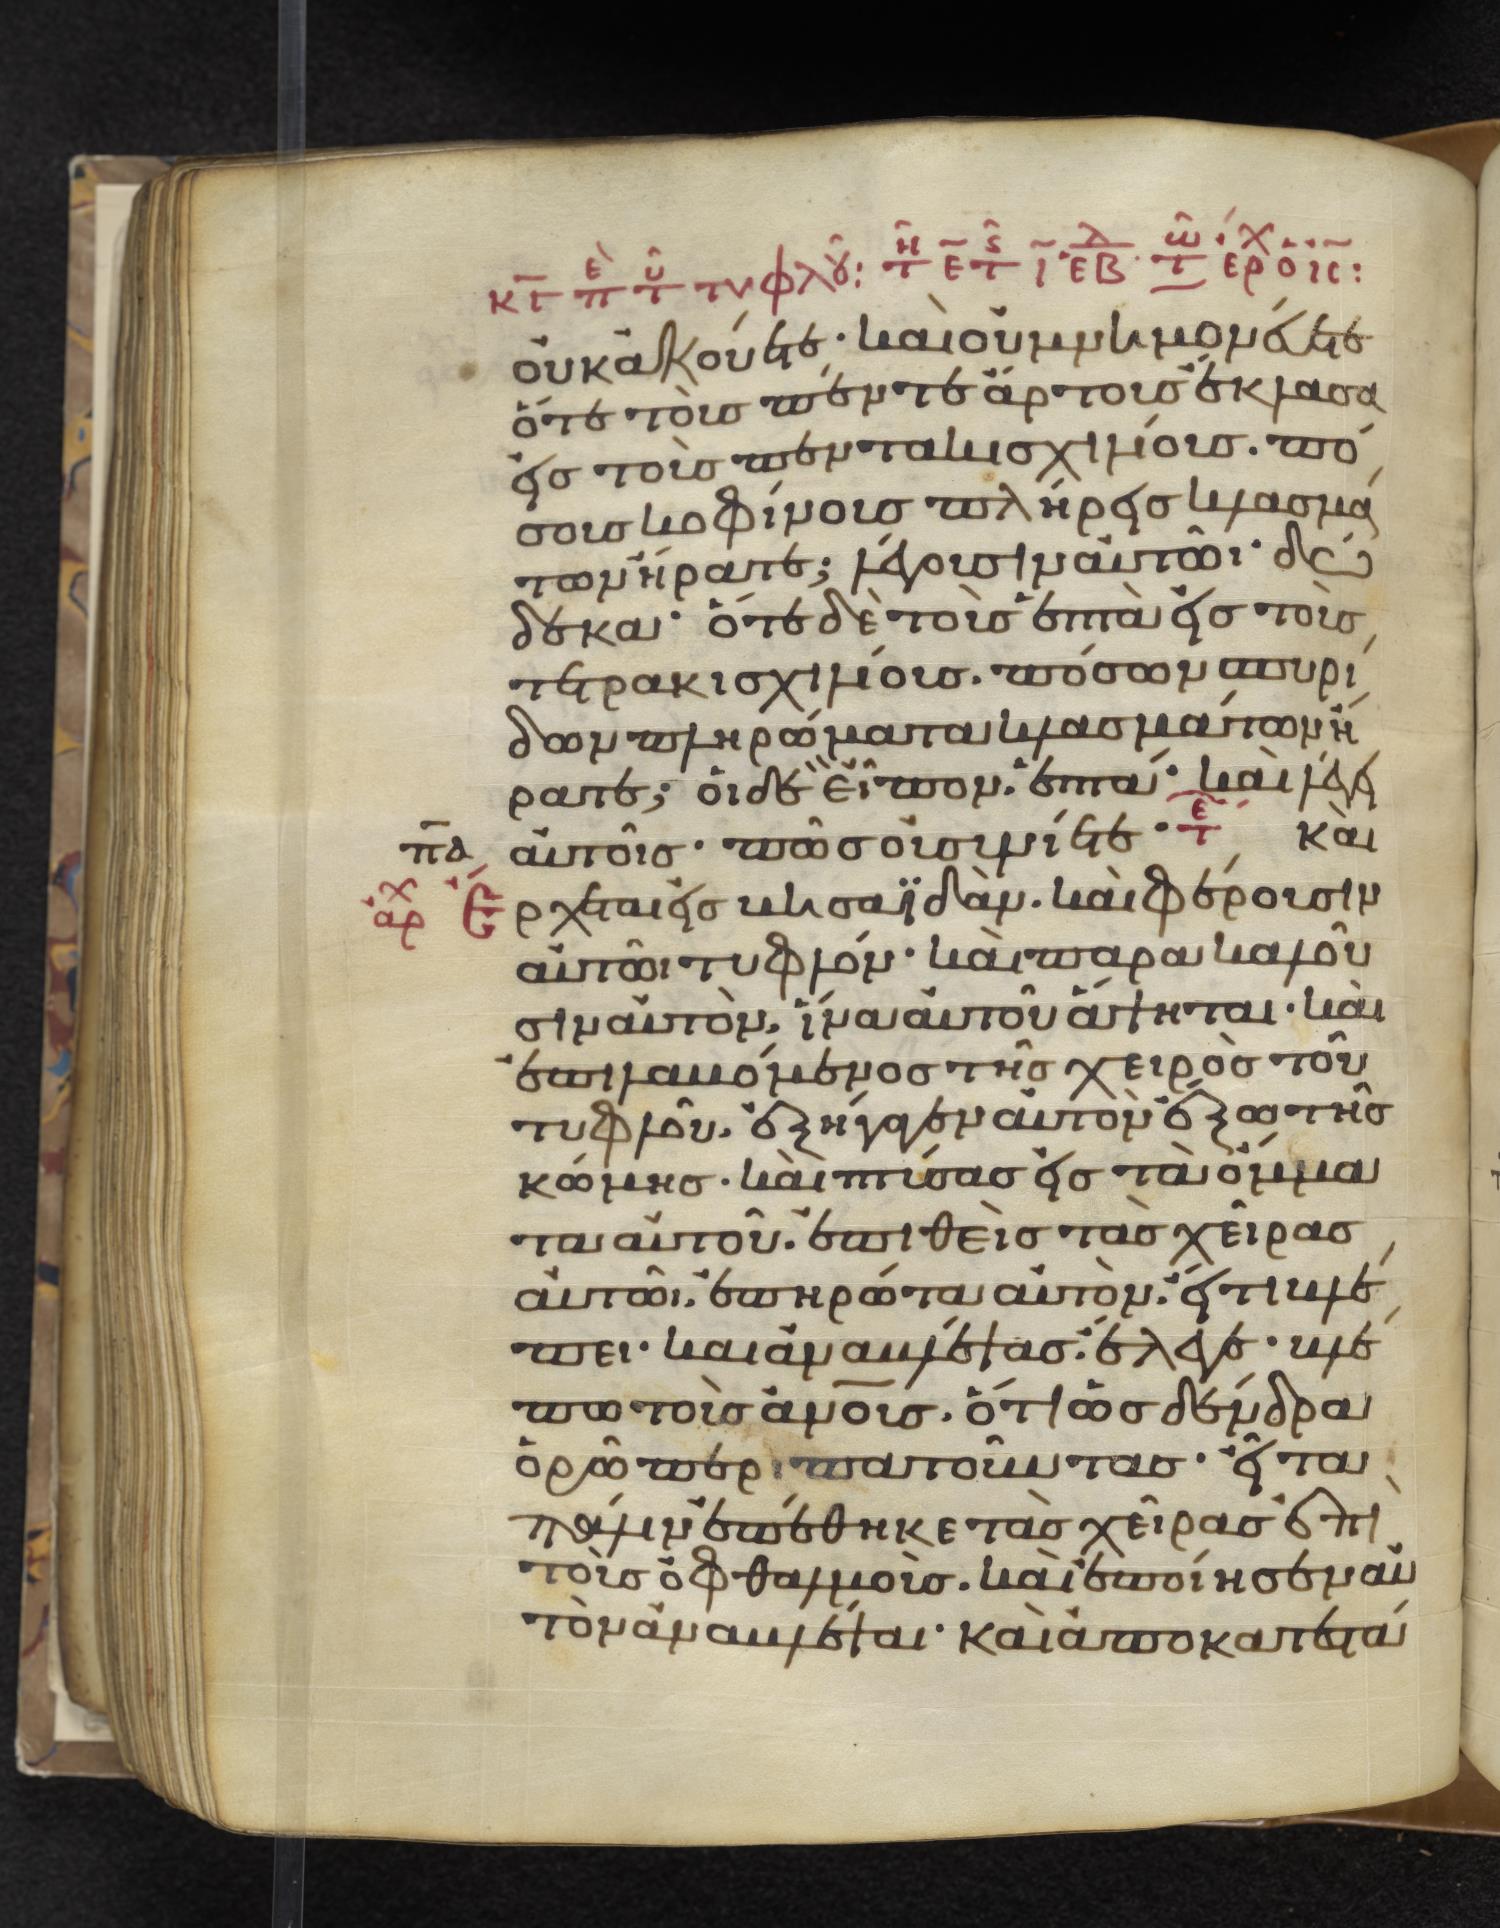 κγ περ του τυφλου: τη ε τς ι εβ τω κερω ις:
οὐκ ἀκούετε· καὶ οὐ μνημονεύετε
ὅτε τοὺς πέντε ἄρτους ἔκλασα
εἰς τοὺς πεντακισχιλίους. πό
σους κοφίνους πλήρεις κλασμά
των ἤρατε; λέγουσιν αὐτῶι· δώ
δεκα· ὅτε δὲ τοὺς ἑπτὰ εἰς τοὺς
τετρακισχιλίους. πόσων σπυρί
δων πληρώματα κλασμάτων ἤ
ρατε; οἱ δὲ εἶπον. ἑπτά· καὶ λέγει
πδ αὐτοῖς· πῶς οὐ συνίετε· τε καὶ
αρχ ἔρχεται εἰς βησαϊδὰν. καὶ φέρουσιν
αὐτῶι τυφλόν· καὶ παρακαλοῦ
σιν αὐτὸν, ἵνα αὐτοῦ ἅψηται· καὶ
ἐπιλαβόμενος τῆς χειρὸς τοῦ
τυφλοῦ. ἐξήγαγεν αὐτὸν ἔξω τῆς
κώμης. καὶ πτύσας εἰς τὰ ὄμμα
τα αὐτοῦ. ἐπιθεὶς τὰς χεῖρας
αὐτῶι. ἐπηρώτα αὐτὸν. εἴ τι βλέ
πει· καὶ ἀναβλέψας. ἔλεγε· βλέ
πω τοὺς ἀνους. ὅτι ὡς δένδρα
ὁρῶ περιπατοῦντας· εἶτα
πάλιν ἐπέθηκε τὰς χεῖρας ἐπὶ
τοὺς ὀφθαλμοὺς. καὶ ἐποίησεν αὐ
τὸν ἀναβλέψαι· καὶ ἀποκατεστά